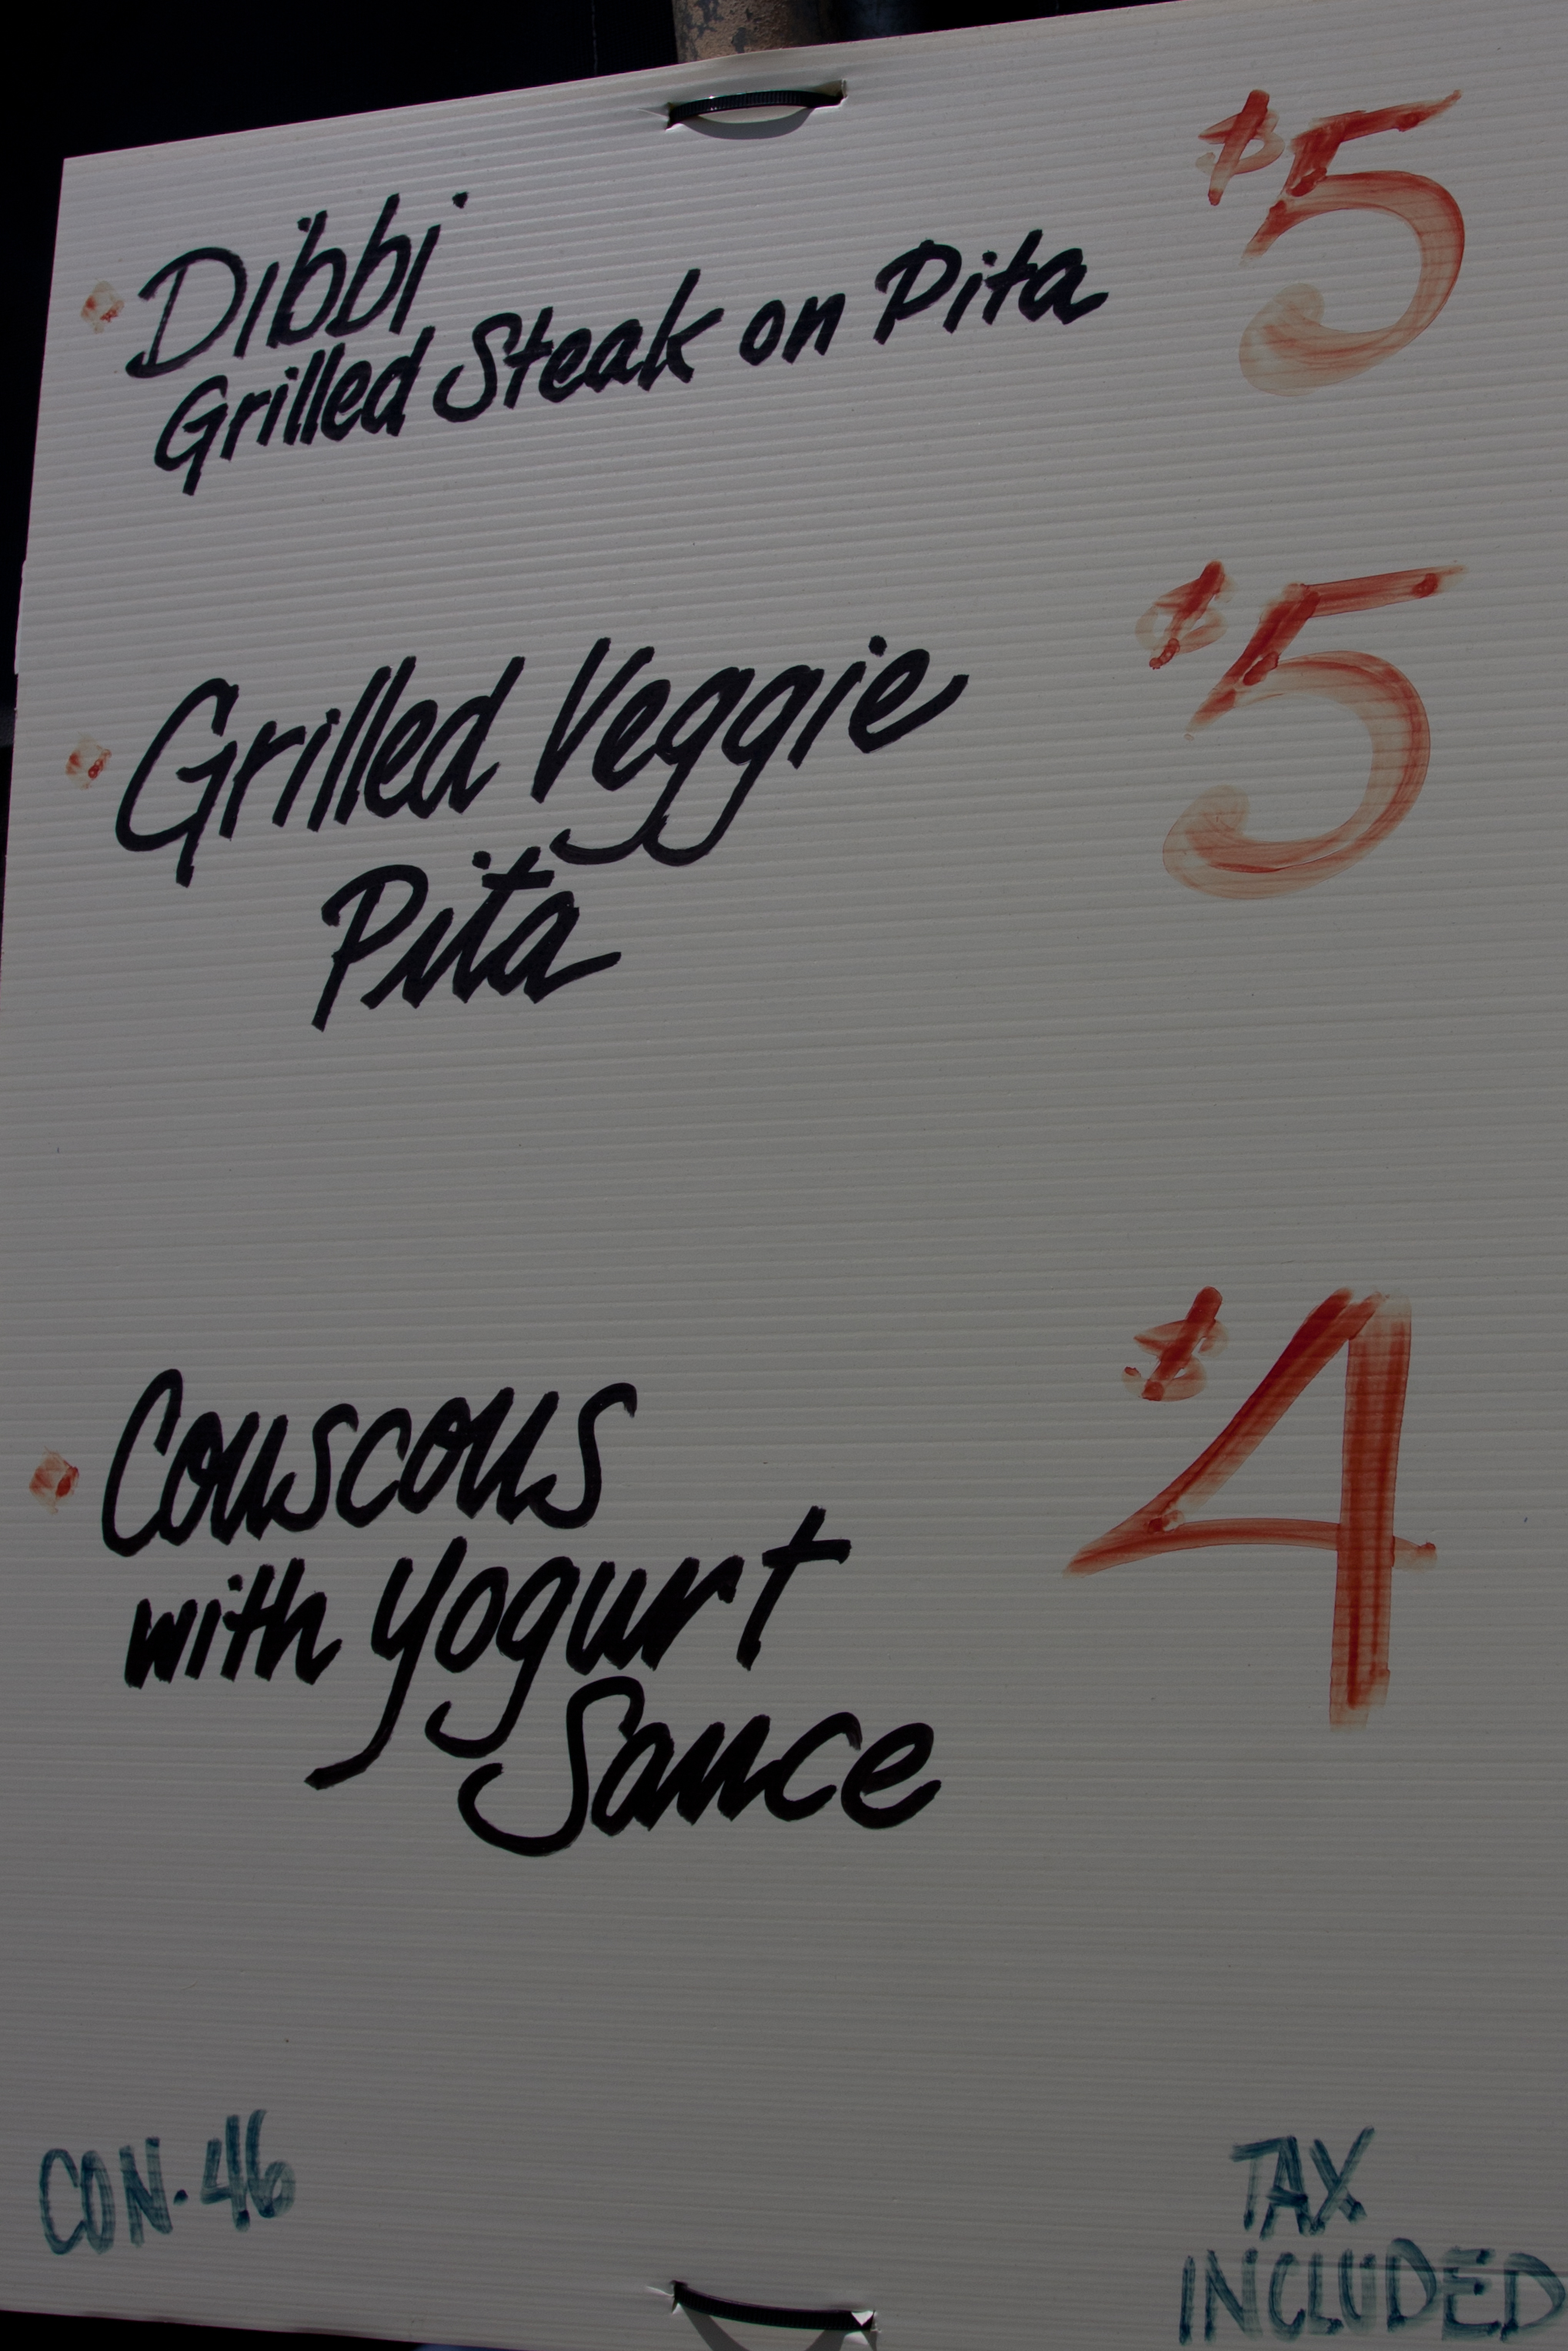 Dibbi $5
Grilled Steak on Pita
Grilled Veggie $5
Pita
Couscous $4
with Yogurt
Sauce
CON-46
TAX
INCLUDED